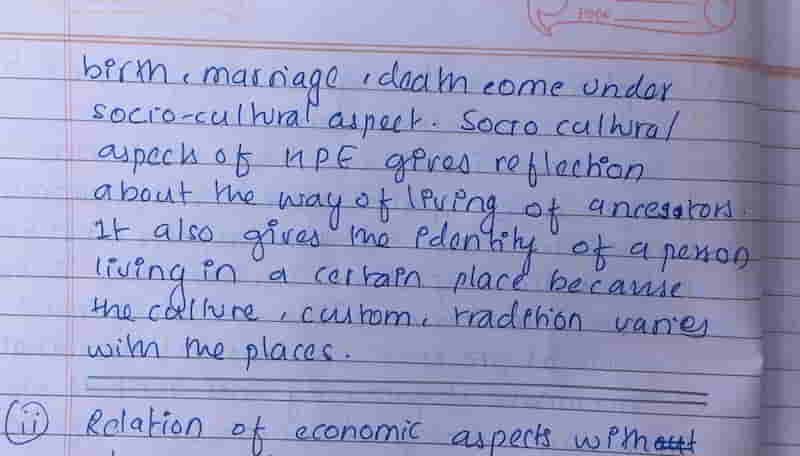 birth, marriage, death come under
socio-cultural aspect. Socio cultural
aspects of HPE gives reflection
about the way of living of ancesstors.
It also gives the identity of a person
living in a certain place because
the culture, custom, tradition varies
with the places.
(ii) Relation of economic aspects with